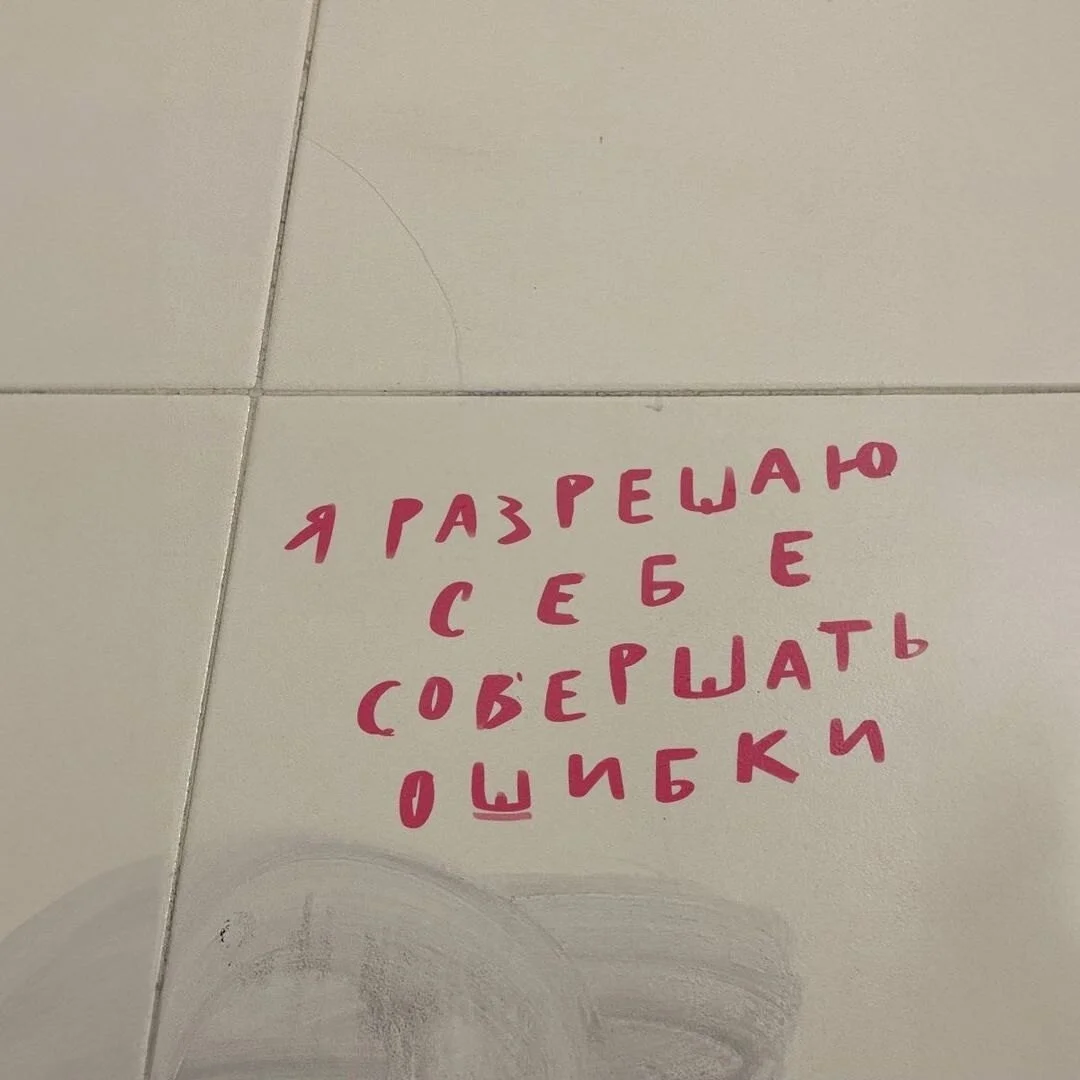 Я РАЗРЕШАЮ
СЕБЕ
СОВЕРШАТЬ
ОШИБКИ